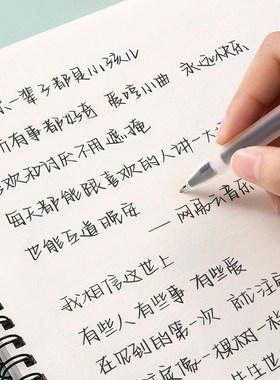 一辈子都是小孩儿
所有事都好奇 爱哼小曲 永远快乐
喜欢和讨厌不用遮掩
每天都能跟喜欢的人讲一大
也能互道晚安
—— 网易云音乐
我相信这世上
有些人有些事 有些爱
在见到的第一次 就注
像一棵树一样
生生世